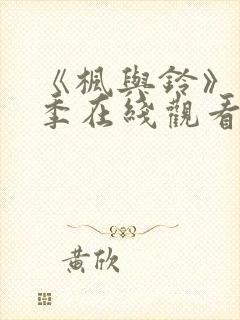 《楓與鈴》
季在綫觀看
黃欣